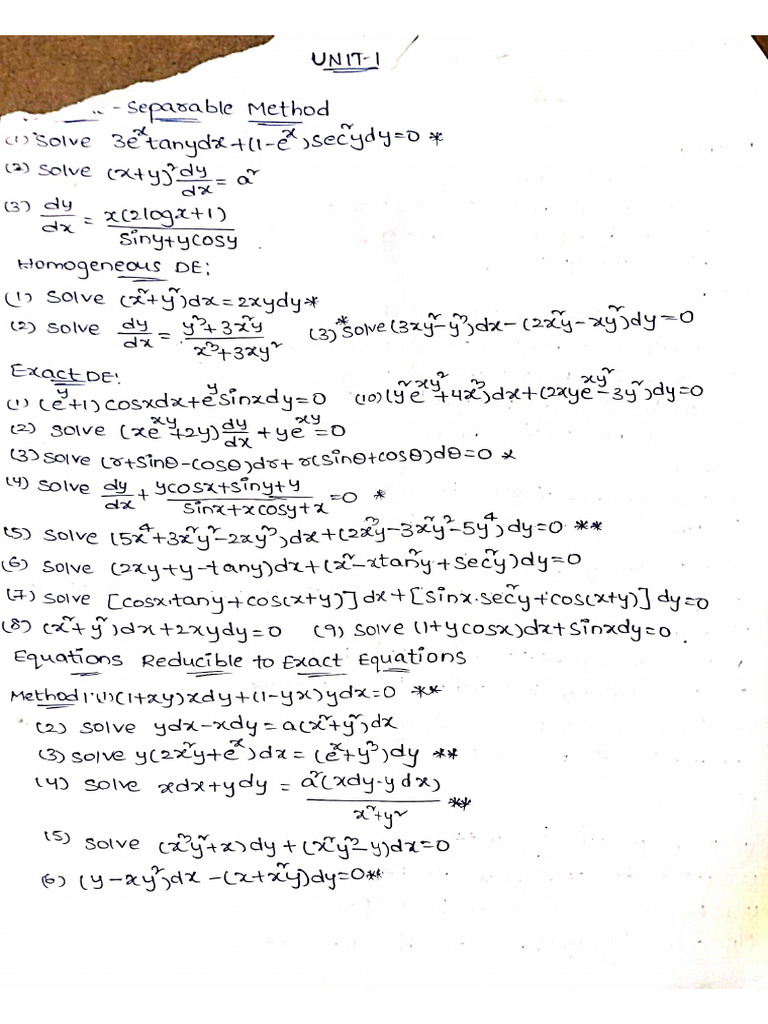 UNIT-1
- Separable Method
(1) Solve 3eˣ tany dx + (1-eˣ) sec²y dy = 0 *
(2) Solve (x+y)² dy/dx = a²
(3) dy/dx = x(2logx+1) / siny+ycosy .
Homogeneous DE:
(1) Solve (x²+y²)dx = 2xydy *
(2) Solve dy/dx = y³+3x²y / x³+3xy² (3) * Solve (3xy²-y³)dx-(2x²y-xy²)dy=0
Exact DE:
(1) (e^y+1) cosxdx+e^y sinxdy=0 (10) (y²e^xy²+4x³)dx+(2xye^xy²-3y²)dy=0
(2) Solve (xe^xy+2y) dy/dx + ye^xy=0
(3) Solve (r+sinθ-cosθ)dr+r(sinθ+cosθ)dθ=0 *
(4) Solve dy/dx + ycosx+siny+y / sinx+xcosy+x =0 *
(5) Solve (5x⁴+3x²y²-2xy³)dx+(2x³y-3x²y²-5y⁴)dy=0 **
(6) Solve (2xy+y-tany)dx+(x²-xtan²y+sec²y)dy=0
(7) Solve [cosx.tany+cos(x+y)]dx+[sinx.sec²y+cos(x+y)]dy=0
(8) (x²+y²)dx+2xydy=0 (9) Solve (1+ycosx)dx+sinxdy=0 .
Equations Reducible to Exact Equations
Method 1: (1) (1+xy)xdy+(1-yx)ydx=0 **
(2) Solve ydx-xdy=a(x²+y²)dx
(3) Solve y(2x²y+eˣ)dx=(eˣ+y³)dy **
(4) Solve xdx+ydy = a²(xdy-ydx) / x²+y² **
(5) Solve (x³y²+x)dy+(x²y³-y)dx=0
(6) (y-xy²)dx-(x+x²y)dy=0 **